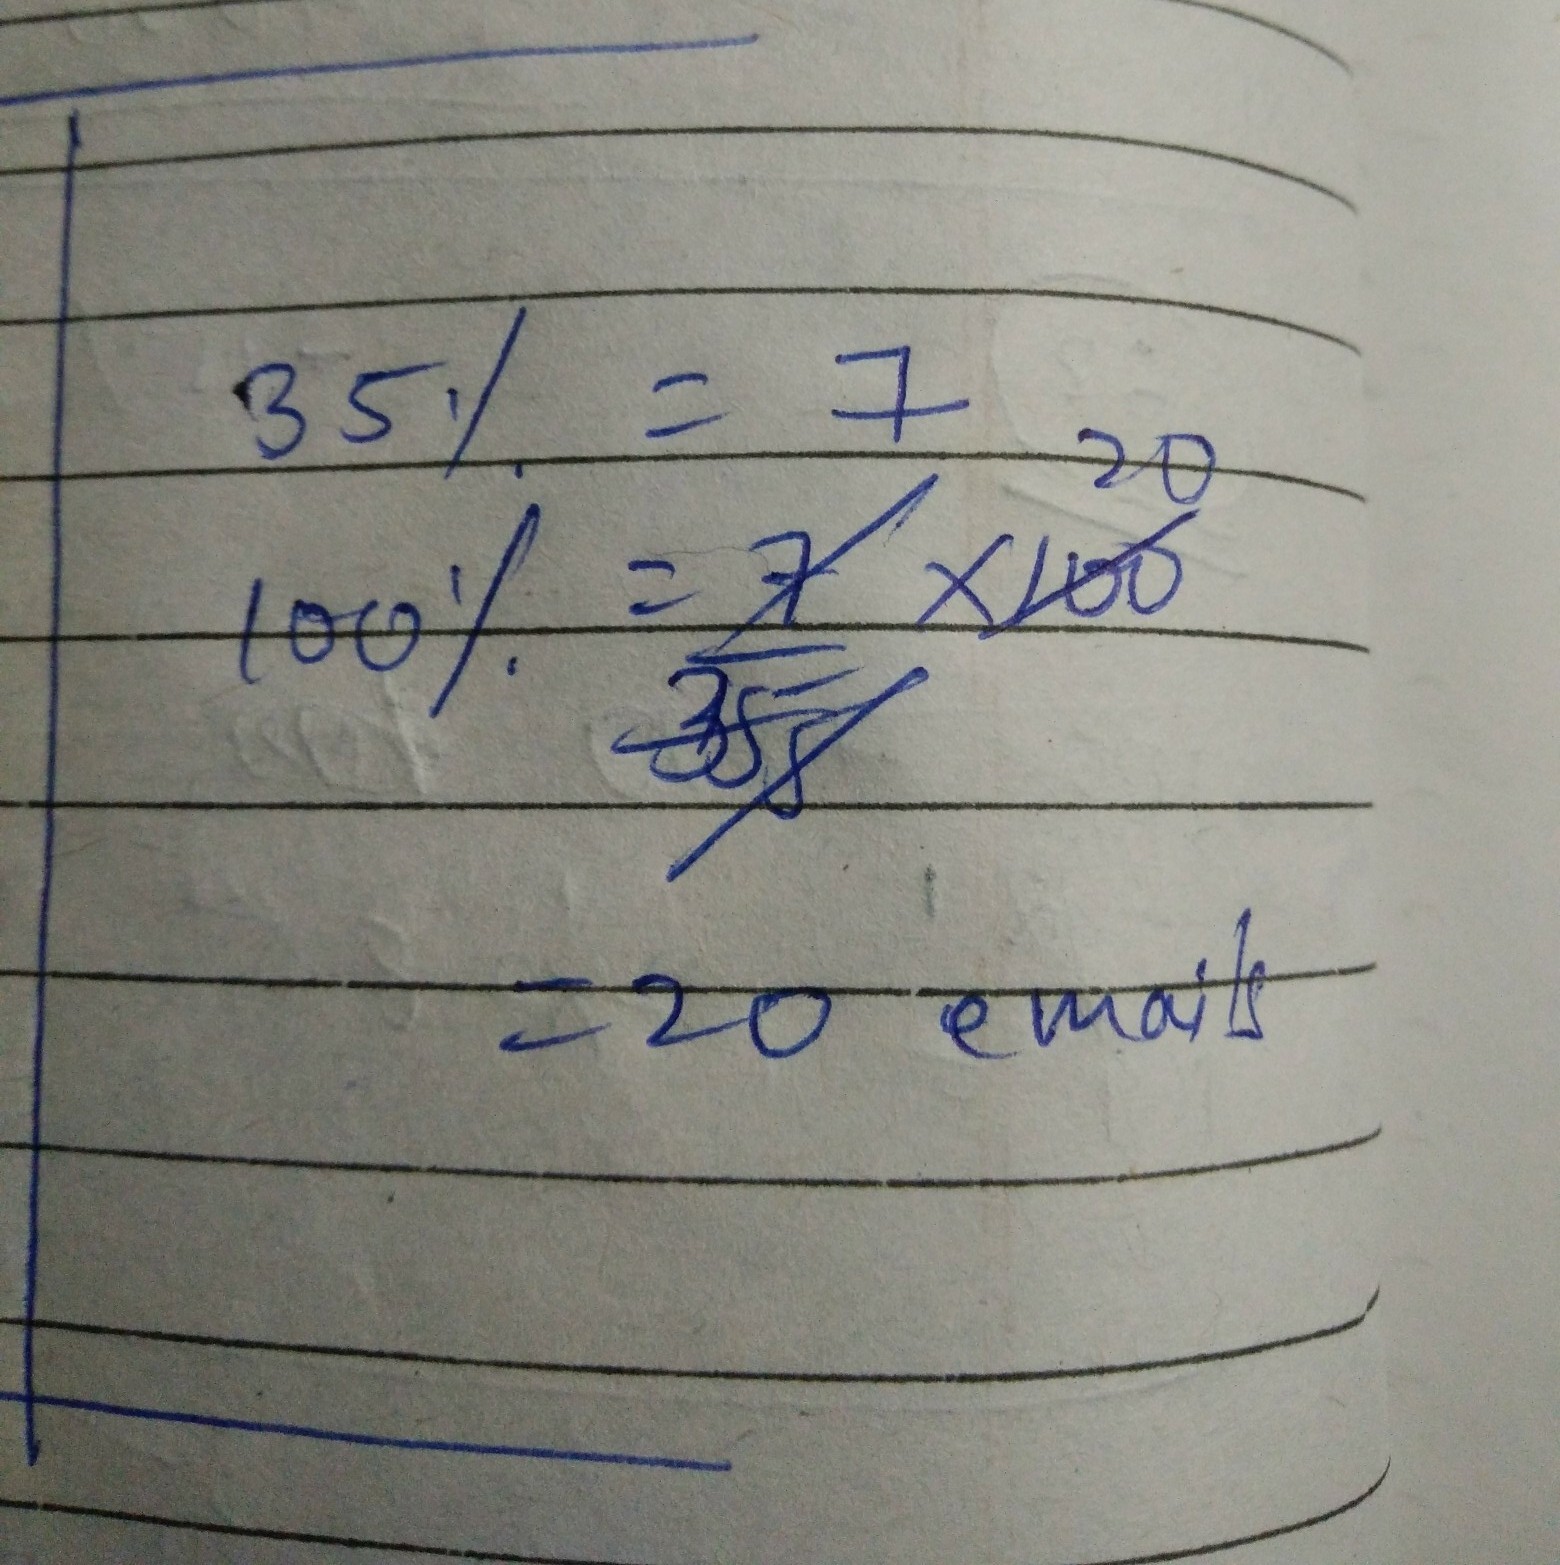 35% = 7
20
100% = 7 ×100
35 5
=20 emails